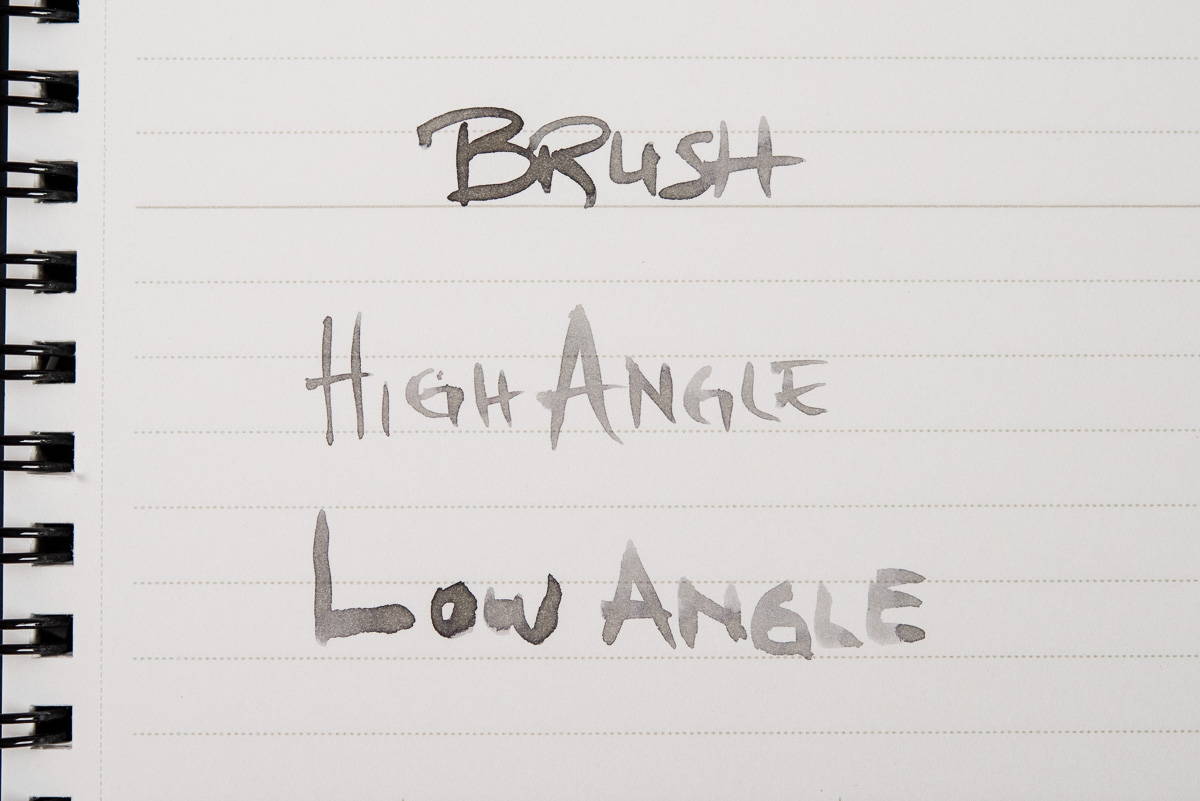 BRUSH
HIGH ANGLE
LOW ANGLE